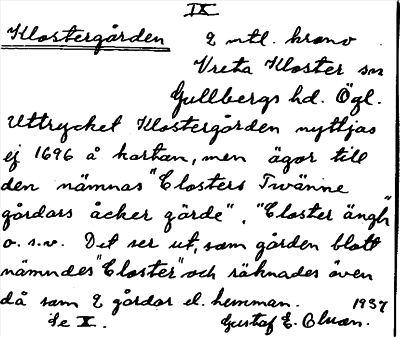 IX
Klostergården 2 mtl. krono
Vreta Kloster sn
Gullbergs hd. Ögl.
Uttrycket Klostergården nyttjas
ej 1696 å kartan, men ägor till
den nämnas "Closters Twänne
gårdars åcker gärde", "Closter ängh"
o.s.v. Det ser ut, som gården blott
nämndes "Closter" och räknades även
då som 2 gårdar el. hemman. 1937
Se X. Gustaf E.